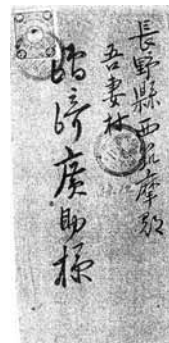 長野縣西筑摩郡
吾妻村
嶋崎廣助様